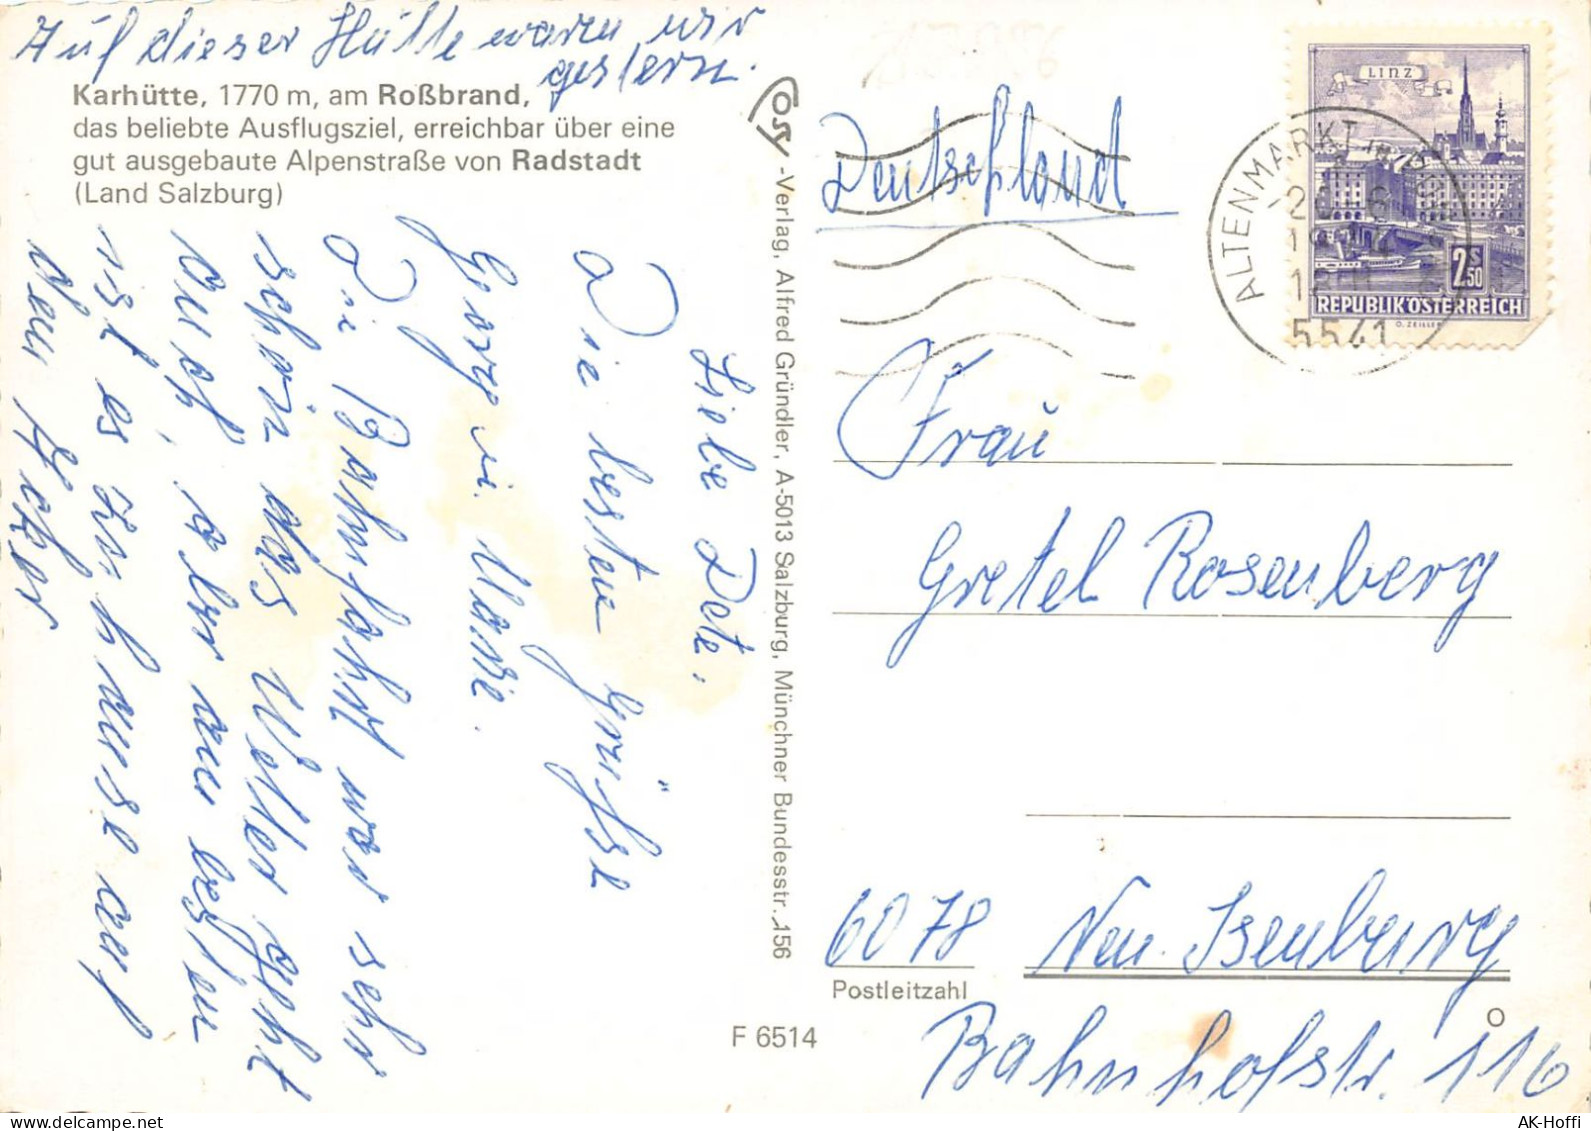 Auf dieser Hütte waren wir
gestern.
Karhütte, 1770 m, am Roßbrand,
das beliebte Ausflugsziel, erreichbar über eine
gut ausgebaute Alpenstraße von Radstadt
(Land Salzburg)
Liebe Dete,
Die besten Grüsse
Georg u.
Die Bahnfahrt war sehr
schön das Wetter geht
auch, aber am besten
ist es zu hause auf
dem Acker
Cosy-Verlag, Alfred Gründler, A-5013 Salzburg, Münchner Bundesstr. 156
F 6514
Deutschland
LINZ
2 S 50
REPUBLIK ÖSTERREICH
O. ZEILLER
ALTENMARKT IM
5541
Frau
Gretel Rosenberg
6078 Neu-Isenburg
Postleitzahl
Bahnhofstr. 116
AK-Hoffi